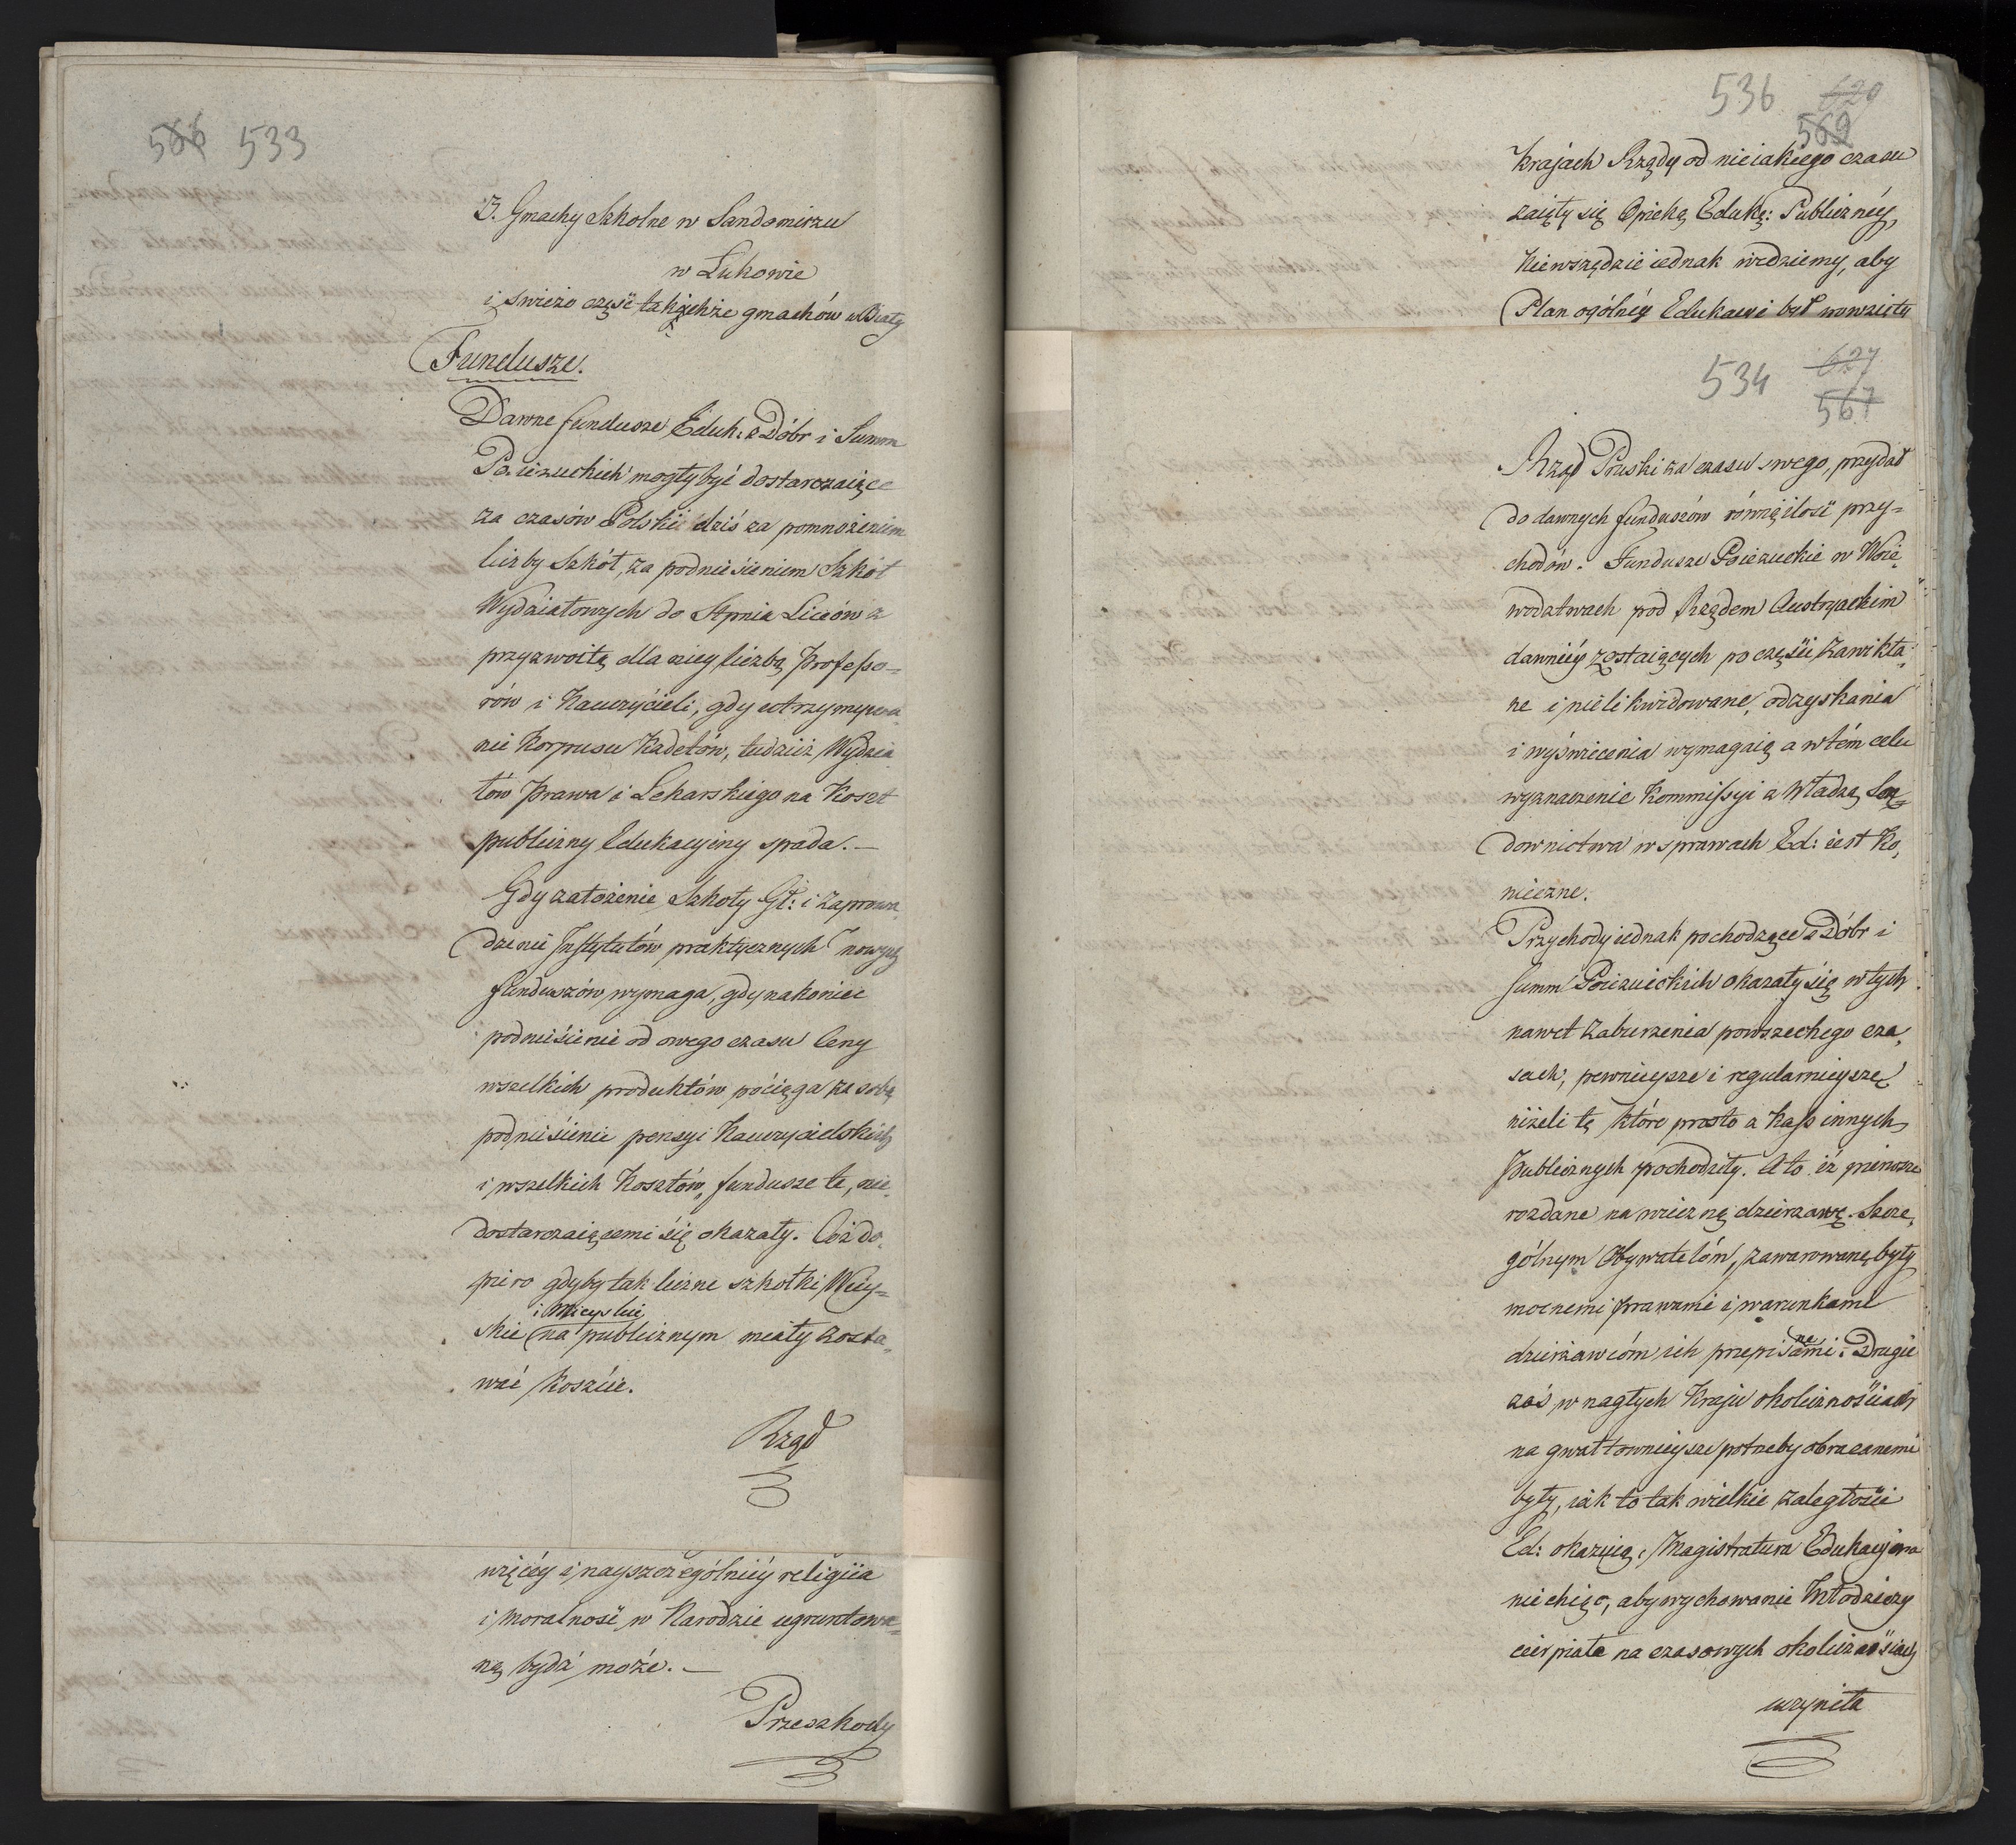 566 533
3. Gmachy Szkolne w Sandomirzu
w Łukowie
i świeżo część takichże gmachów w Biały
Fundusze.
Dawne fundusze Eduk: z Dóbr i Summ
Poiezuickich mogły być dostarczaiące
za czasów Polski dziś za pomnożeniem
liczby Szkół, za podniesieniem Szkół
Wydziałowych do Stpnia Liceów z
przyzwoitą dla niey liczbą Professo=
rów i Nauczycieli, gdy utrzymywa
nie Korpusu Kadetów, tudzież Wydzia
łów Prawa i Lekarskiego na Koszt
publiczny Edukacyiny spada. —
Gdy założenie Szkoły Gł: i zaprowa
dzenie Instytutów praktycznych nowych
funduszów wymaga, gdy nakoniec
podniesienie od owego czasu Ceny
wszelkich produktów pociąga za sobą
podniesienie pensyi Nauczycielskich
i wszelkich Kosztów, fundusze te, nie
dostarczaiącemi się okazały. Cóż do
piero gdyby tak liczne szkółki Wiey=
i Mieyskie
skie na publicznym miały zosta
wać Koszcie.
Rząd
więcéy i nayszczególniéy religiia
i moralność w Narodzie ugruntowa=
ną bydź może. —
Przeszkody
536 629
569
Krajach Rządy od nieiakiego czasu
zaięły się Opieką Edukę: Publicznéy,
Niewszędzie iednak widziemy, aby
Plan ogólnéy Edukacyi był powzięty
534 627
567
Rząd Pruski za czasu swego, przydał
do dawnych funduszów równą ilość przy=
chodów. Fundusze Poiezuickie w Woie
wodztwach pod Rządem Austryackim
dawniéy zostaiących po części zawikła
ne i nielikwidowane, odzyskania
i wyświecenia wymagaią a w tém celu
wyznaczenie Kommissyi z Władzą Są=
downictwa w sprawach Ed: iest Ko
nieczne.
Przychody iednak pochodzące z Dóbr i
summ Poiezuickich okazały się w tych
nawet zaburzenia powszechego cza
sach, pewnieysze i regularnieysze
niżeli te które prosto z Kass innych
Publicznych pochodziły. A to iż pierwsze
rozdane na wieczną dzierzawę Szcze
gólnym Obywatelóm, zawarowane były
mocnemi prawami i warunkami
dzierżawcóm ich przepisanemi: Drugie
zaś w nagłych Kraju okolicznościach
na gwałtownieysze potrzeby obracanemi
były, iak to tak wielkie zaległości
Ed: okazuią. Magistratura Edukacyina
niechcąc, aby wychowanie Młodzieży
cierpiało na czasowych okolicznościach
uczyniła